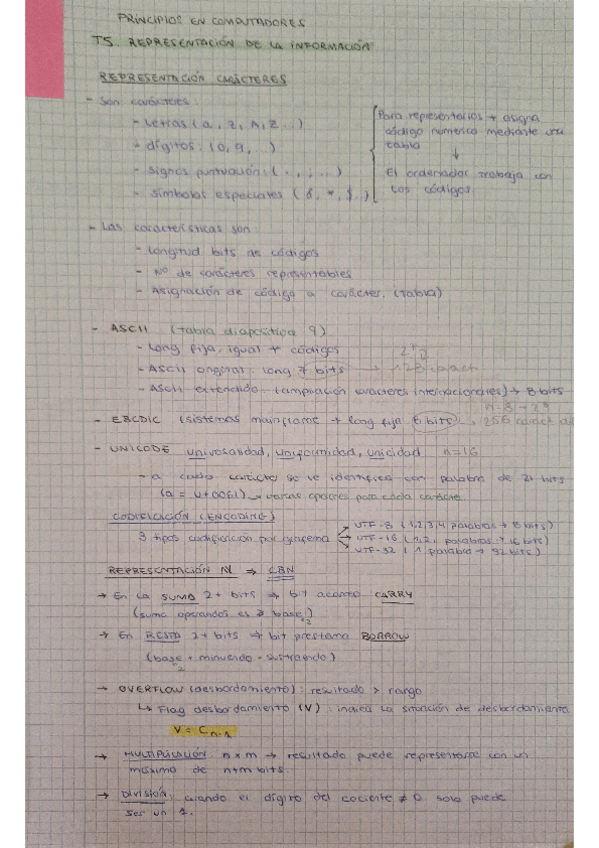 PRINCIPIOS EN COMPUTADORES
T5. REPRESENTACIÓN DE LA INFORMACIÓN
REPRESENTACIÓN CARÁCTERES
- Son carácteres:
- Letras (a, z, A, Z...)
- dígitos: (0, 9, ..)
- signos puntuación: (. , ; ...)
- símbolos especiales (&, *, $..)
Para representarlos → asigna
código numérico mediante una
tabla
↓
El ordenador trabaja con
los códigos
- Las características son:
- Longitud bits de códigos
- Nº de carácteres representables
- Asignación de código a carácter. (tabla)
- ASCII (tabla diapositiva 9)
- Long fija, igual + códigos
- ASCII original: long 7 bits → 128 caract
- ASCII extendido: (ampliación carácteres internacionales) → 8 bits
- EBCDIC (sistemas mainframe → long fija 8 bits), 256 caract
- UNICODE universalidad, uniformidad, unicidad n=16
- a cada carácter se le identifica con palabra de 21 bits
(a = U+0061) → varias opciones para cada carácter.
CODIFICACIÓN (ENCODING)
3 tipos codificación por
UTF-8 (1,2,3,4 palabras → 8 bits)
UTF-16 (1,2, palabras → 16 bits)
UTF-32 (1 palabra → 32 bits)
REPRESENTACIÓN N ⇒ CBN
→ En la SUMA 2 + bits ⇒ bit acarreo CARRY
(suma operandos es ≥ base)
→ En RESTA 2 + bits ⇒ bit préstamo BORROW
(base + minuendo - sustraendo)
→ OVERFLOW (desbordamiento): resultado > rango
↳ Flag desbordamiento (V): indica la situación de desbordamiento
V = Cn-1
→ MULTIPLICACIÓN: n x m → resultado puede representarse con un
máximo de n+m bits.
→ DIVISIÓN: cuando el dígito del cociente ≠ 0 solo puede
ser un 1.